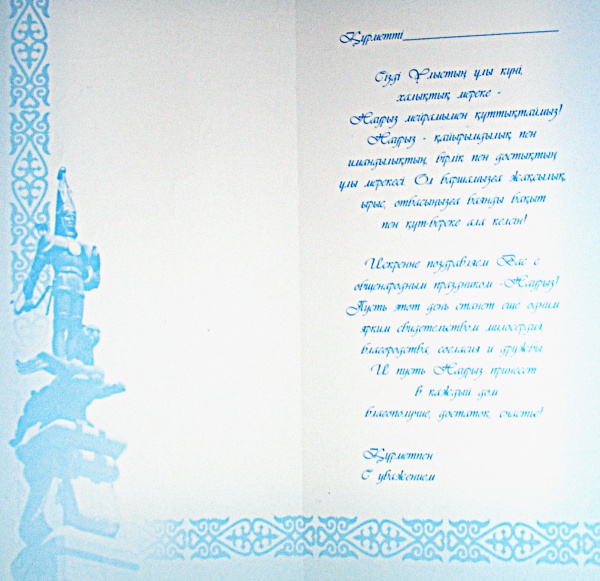 Құрметті
Сізді Ұлыстың ұлы күні,
халықтық мереке -
Наурыз мейрамымен құттықтаймыз!
Наурыз - қайырымдылық пен
имандылықтың, бірлік пен достықтың
ұлы мерекесі. Ол баршамызға жақсылық,
ырыс, отбасыңызға баянды бақыт
пен құт-береке ала келсін!
Искренне поздравляем Вас с
общенародным праздником -Наурыз!
Пусть этот день станет еще одним
ярким свидетельством милосердия,
благородства, согласия и дружбы.
И пусть Наурыз принесет
в каждый дом
благополучие, достаток, счастье!
Құрметпен
С уважением